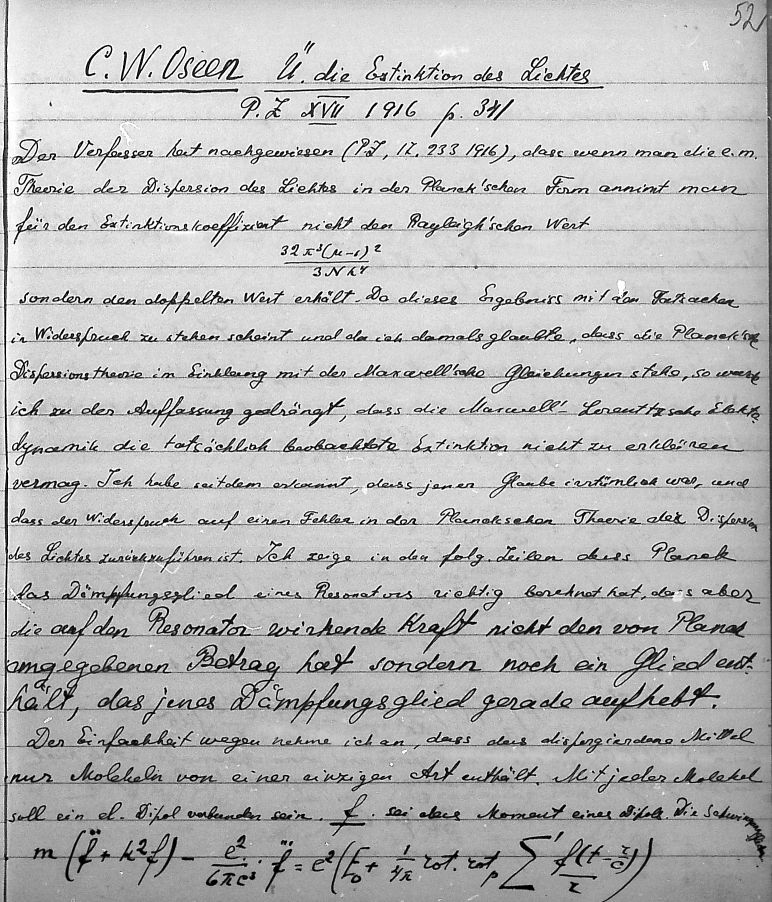 52
C. W. Oseen Ü. die Extinktion des Lichtes
P. Z XVII 1916 p. 341
Der Verfasser hat nachgewiesen (P.Z, 17, 233 1916), dass wenn man die e.m.
Theorie der Dispersion des Lichtes in der Planck'schen Form annimt man
für den Extinktionskoeffizient nicht den Rayleigh'schen Wert
32 π³(μ-1)² / 3 N λ⁴
sondern den doppelten Wert erhält. Da dieses Ergebniss mit den Tatsachen
in Widerspruch zu stehen scheint und da ich damals glaubte, dass die Planck'sche
Dispersionstheorie im Einklang mit der Maxwell'sche Gleichungen stehe, so wurde
ich zu der Auffassung gedrängt, dass die Maxwell'- Lorenttzsche Elektro-
dynamik die tatsächlich beobachtete Extinktion nicht zu erklären
vermag. Ich habe seitdem erkannt, dass jener Glaube irrtümlich war, und
dass der Widerspruch auf einen Fehler in der Planckschen Theorie der Dispersion
des Lichtes zurückzuführen ist. Ich zeige in den folg. Zeilen dass Planck
das Dämpfungsglied eines Resonators richtig berechnet hat, dass aber
die auf den Resonator wirkende Kraft nicht den von Planck
angegebenen Betrag hat sondern noch ein Glied ent-
hält, das jenes Dämpfungsglied gerade aufhebt.
Der Einfachheit wegen nehme ich an, dass das dispergierdene Mittel
nur Molekeln von einer einzigen Art enthält. Mit jeder Molekel
soll ein el. Dipol verbunden sein. f. sei das Moment eines Dipols. Die Schwingungsglchn.
m (f̈ + k²f) - e²/6πc³ · f⃛ = e² (E₀ + 1/4π rot. rotₚ ∑' f(t - r/c)/r)